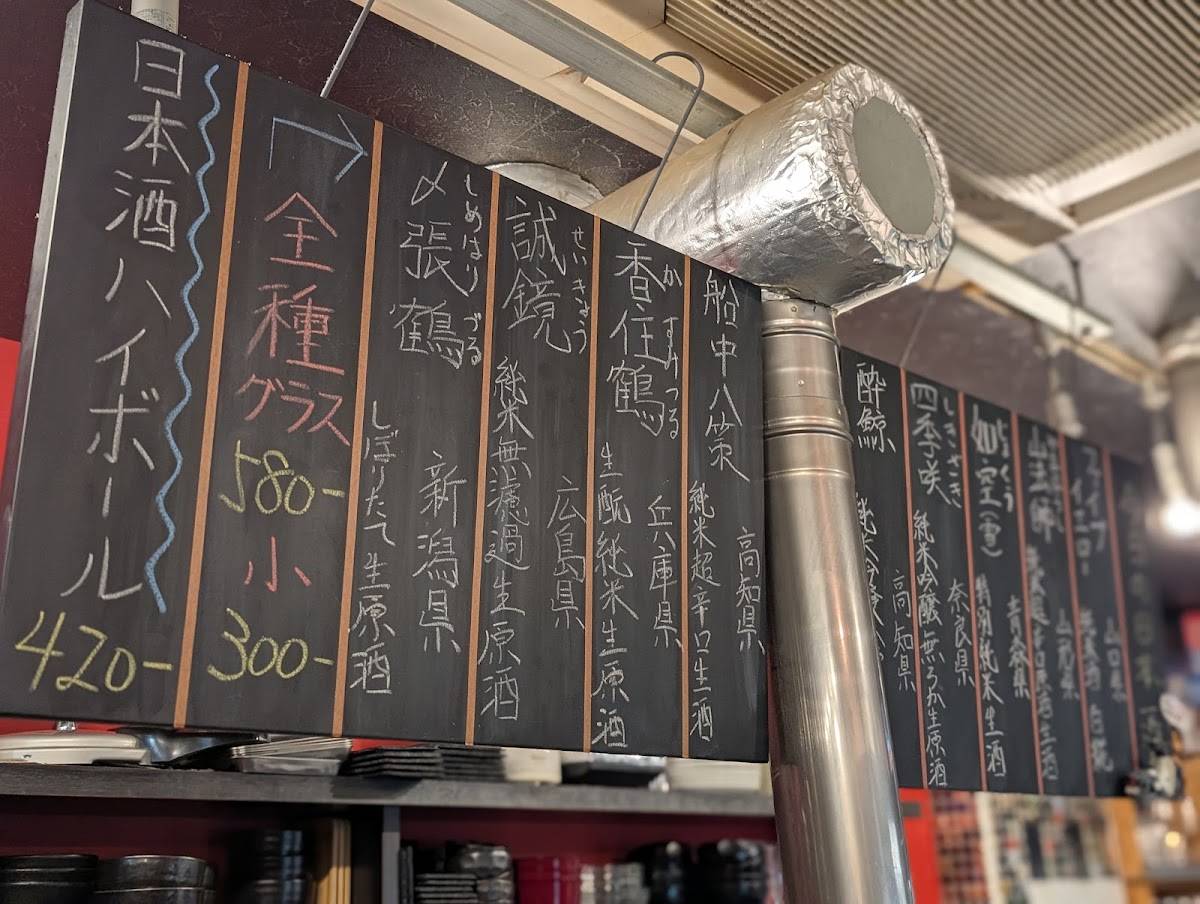 日本酒ハイボール
420-
全種
グラス
580-
小
300-
しめはりづる
〆張鶴
新潟県
しぼりたて生原酒
せいきょう
誠鏡
広島県
純米無濾過生原酒
かすみつる
香住鶴
兵庫県
生酛純米生原酒
船中八策
高知県
純米超辛口生酒
酔鯨
高知県
しきさき
四季咲
奈良県
純米吟醸無ろか生原酒
じょくう
如空(雪)
青森県
特別純米生酒
山法師
山形県
山口県